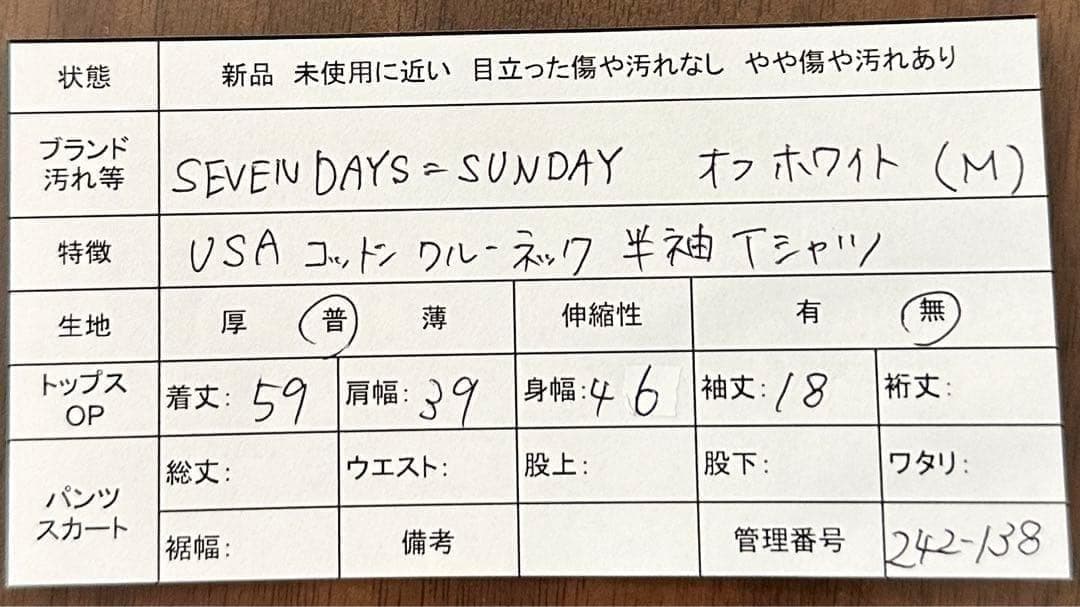 状態 新品 未使用に近い 目立った傷や汚れなし やや傷や汚れあり
ブランド
汚れ等 SEVEN DAYS = SUNDAY オフホワイト (M)
特徴 USA コットン クルーネック 半袖 Tシャツ
生地 厚 普 薄 伸縮性 有 無
トップス
OP 着丈: 59 肩幅: 39 身幅: 46 袖丈: 18 裄丈:
パンツ
スカート 総丈: ウエスト: 股上: 股下: ワタリ:
裾幅: 備考 管理番号 242-138